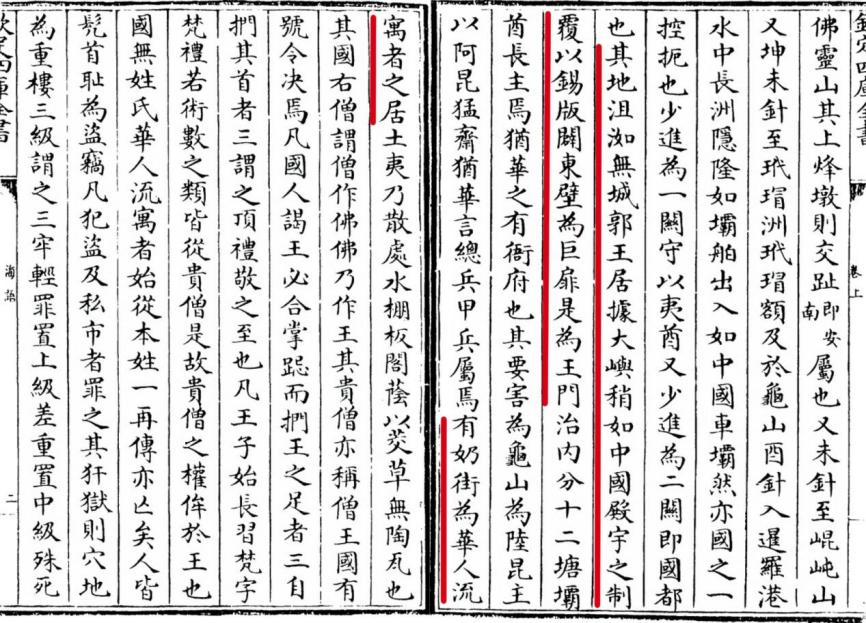 欽定四庫全書
卷上
佛靈山其上烽墩則交趾即安南屬也又未針至崐屯山
又坤未針至玳瑁洲玳瑁額及於龜山酉針入暹羅港
水中長洲隱隆如壩舶出入如中國車壩然亦國之一
控扼也少進為一關守以夷酋又少進為二關即國都
也其地沮洳無城郭王居據大嶼稍如中國殿宇之制
覆以錫版闢東壁為巨扉是為王門治内分十二塘壩
酋長主焉猶華之有衙府也其要害為龜山為陸昆主
以阿昆猛齋猶華言總兵甲兵屬焉有奶街為華人流
寓者之居土夷乃散處水棚板閣蔭以茭草無陶瓦也
其國右僧謂僧作佛佛乃作王其貴僧亦稱僧王國有
號令决焉凡國人謁王必合掌跽而捫王之足者三自
捫其首者三謂之頂禮敬之至也凡王子始長習梵字
梵禮若術數之類皆從貴僧是故貴僧之權侔於王也
國無姓氏華人流寓者始從本姓一再傳亦亾矣人皆
髡首恥為盜竊凡犯盜及私市者罪之其犴獄則穴地
為重樓三級謂之三牢輕罪置上級差重置中級殊死
欽定四庫全書
海語
二